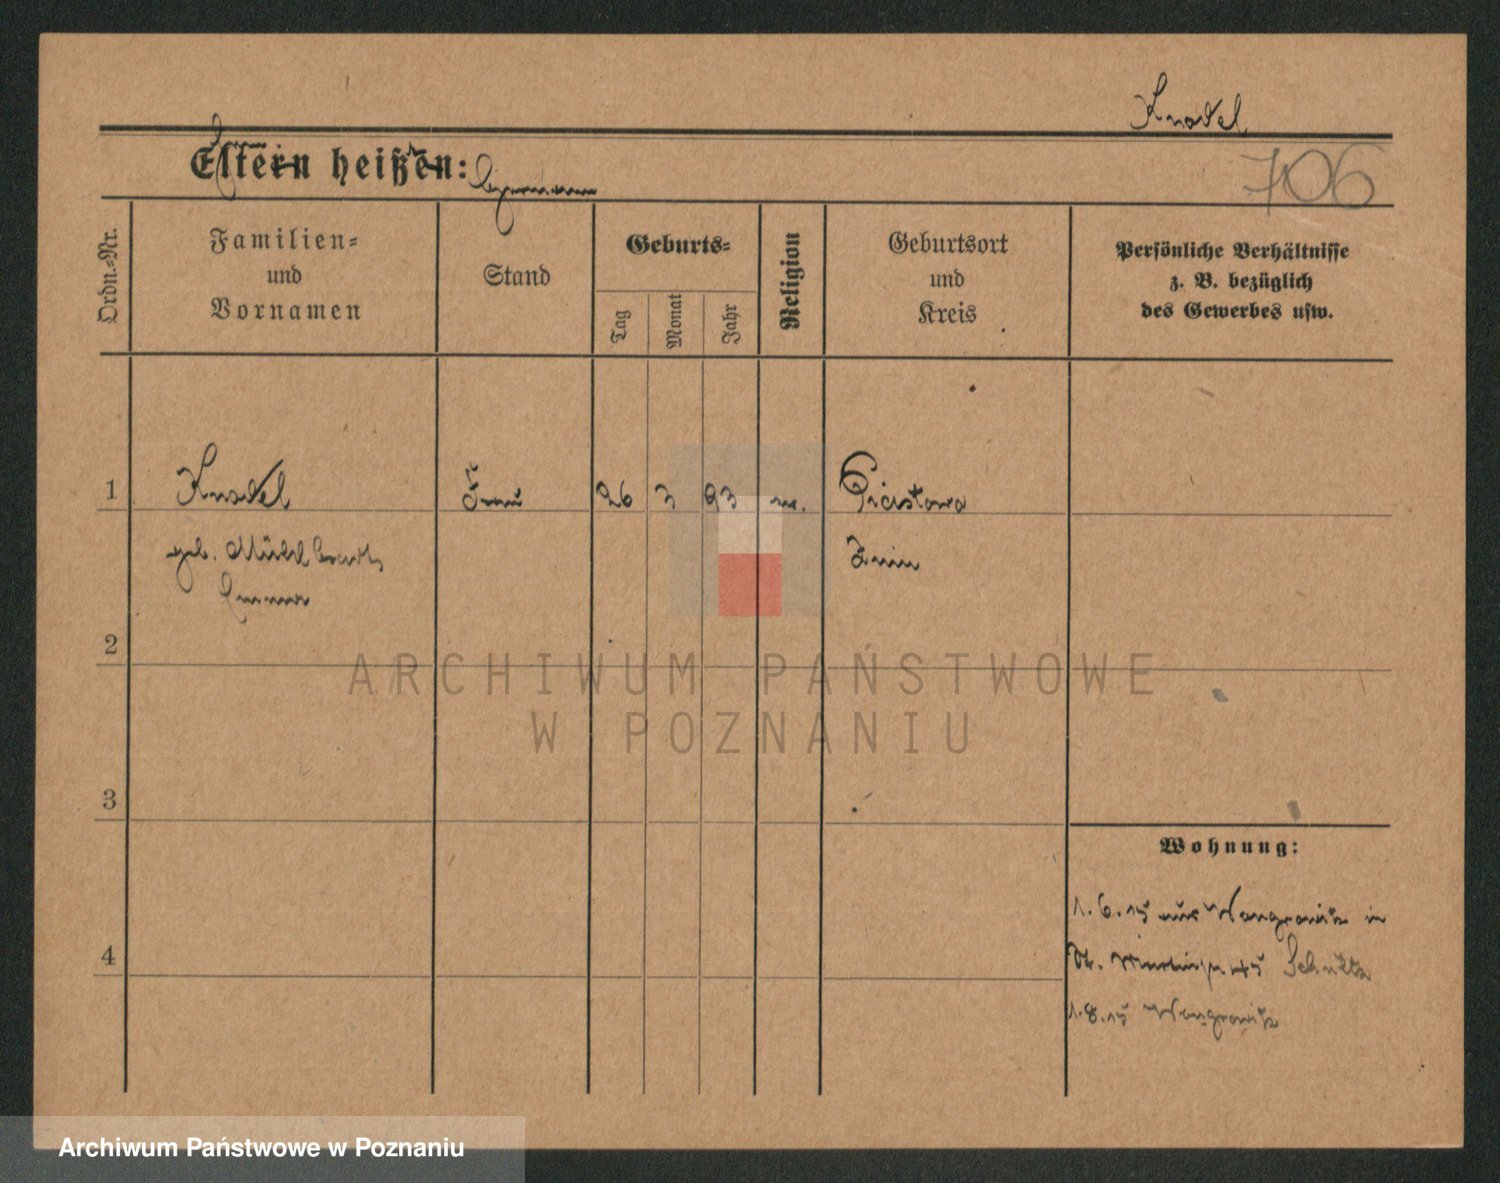 Knodel
706
Eltern heißen:
Ordn.-Nr.
Familien-
und
Vornamen
Stand
Geburts-
Tag
Monat
Jahr
Religion
Geburtsort
und
Kreis
Persönliche Verhältnisse
z. B. bezüglich
des Gewerbes usw.
1 Knodel Frau 26 3 93 Piastowo
geb. Znin
Emma
2
3
4
Wohnung:
1.6.15 aus Wongrowitz in
45 Schultz
1.8.15 Wongrowitz
ARCHIWUM PAŃSTWOWE
W POZNANIU
Archiwum Państwowe w Poznaniu